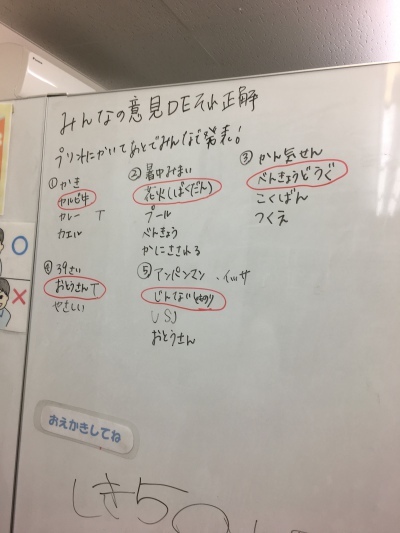 みんなの意見DEそれ正解
プリントにかいてあとでみんなで発表!
①かき
カルピ牛
カレー T
カエル
②暑中みまい
花火(しばくだん)
プール
べんきょう
かにさされる
③かん気せん
べんきょうどうぐ
こくばん
つくえ
④39さい
おとうさんT
やさしい
⑤アンパンマン ・イッサ
じんない
USJ
おとうさん
おえかきしてね
しき5